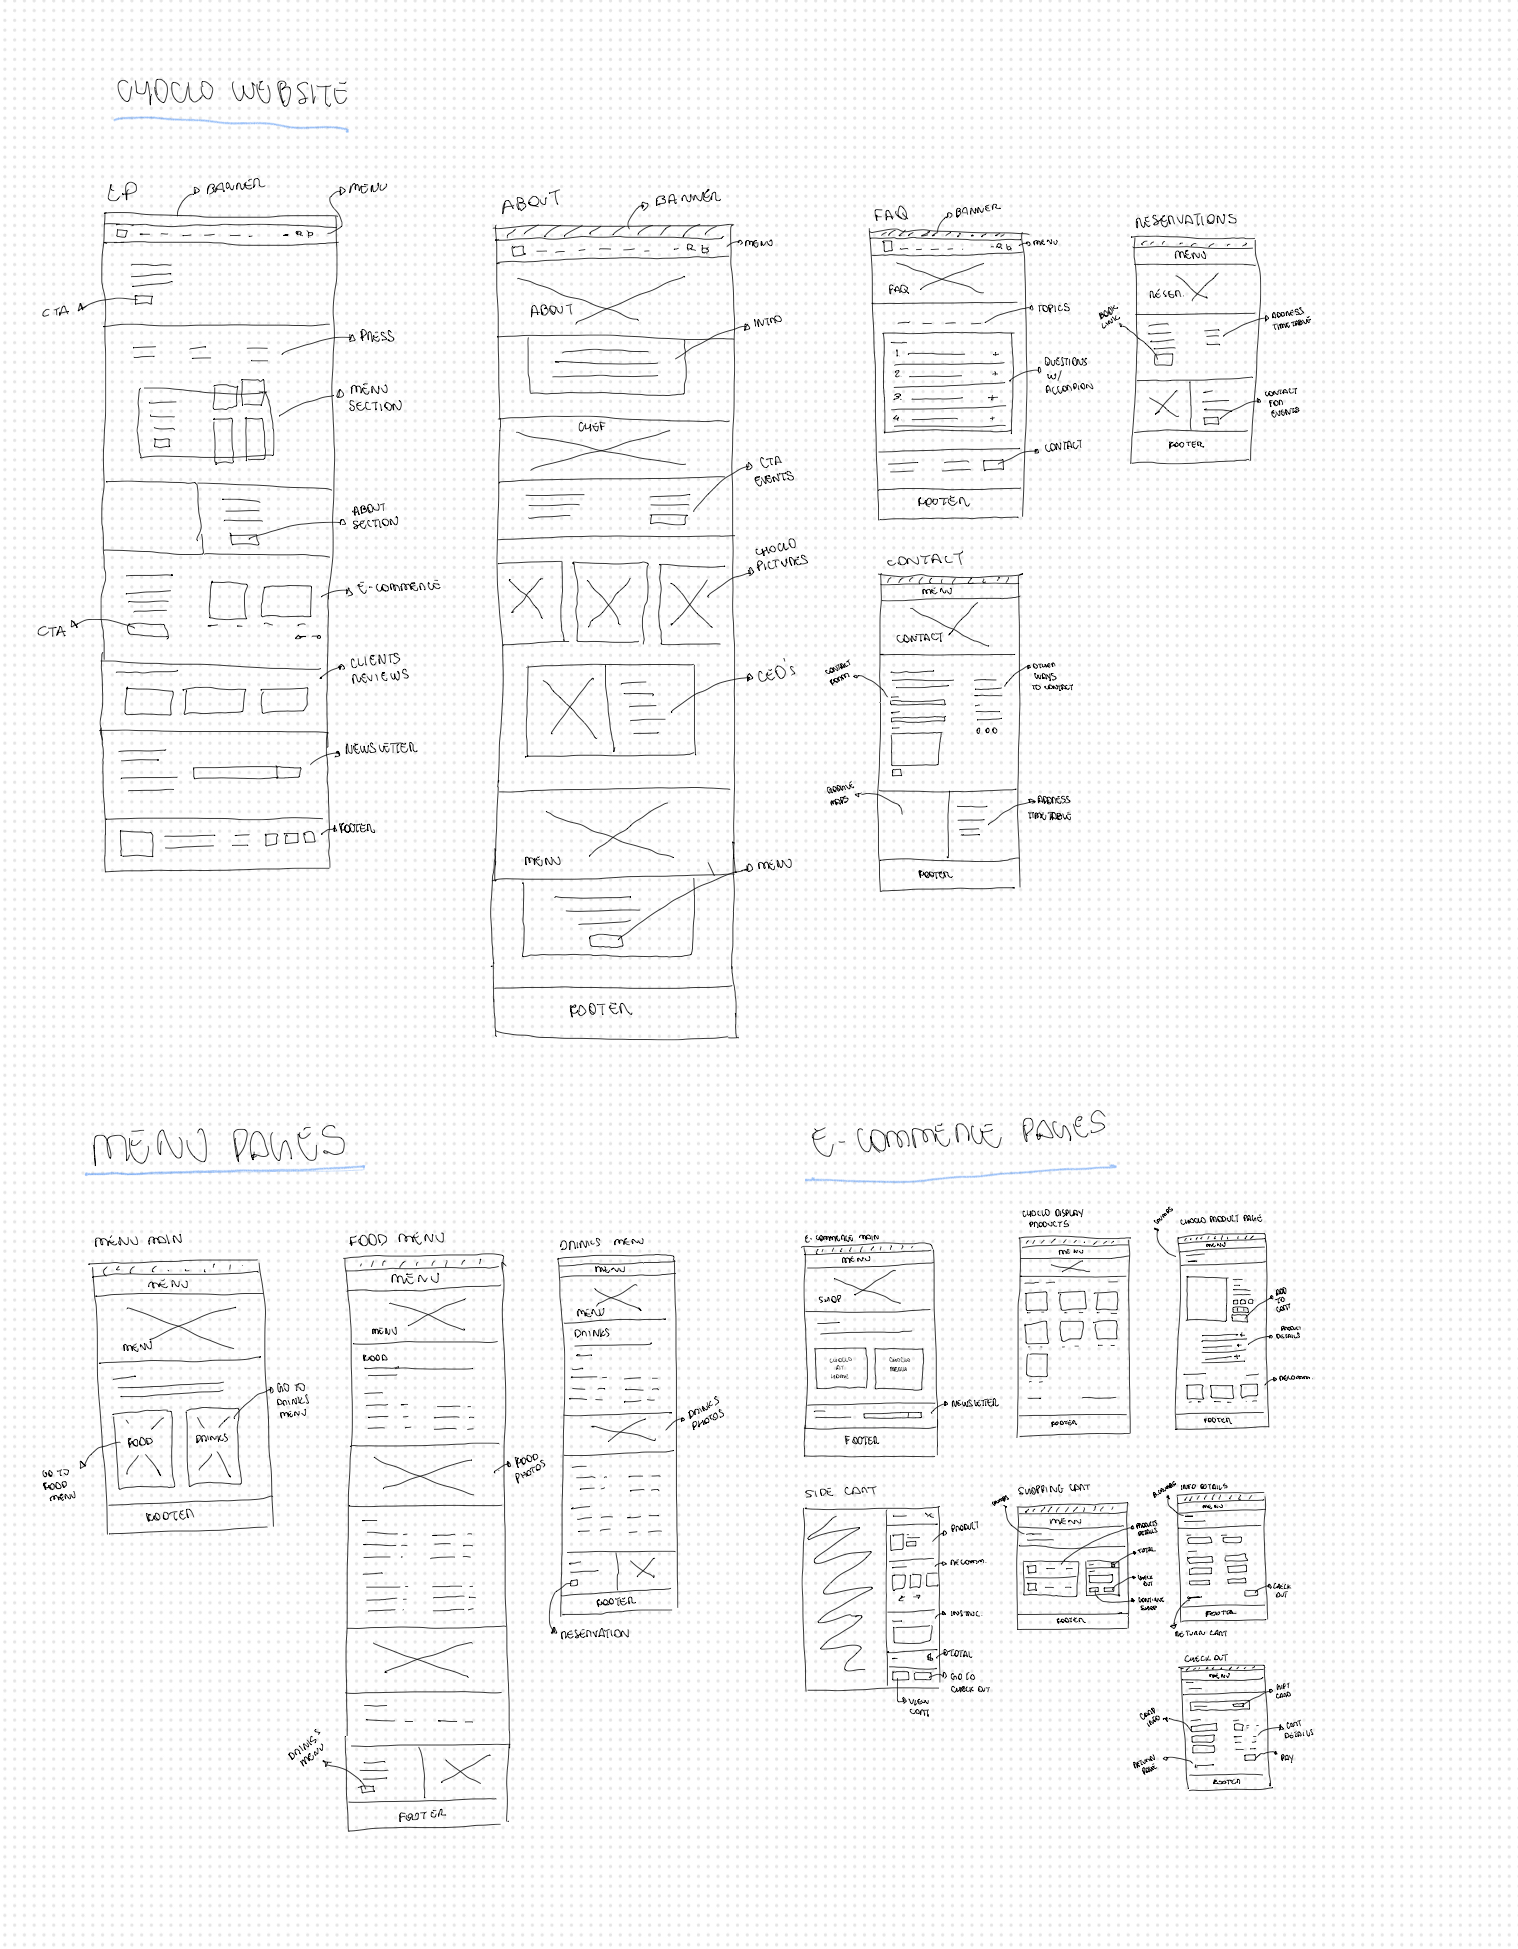 CHOCLO WEBSITE
LP
BANNER
MENU
CTA
PRESS
MENU
SECTION
ABOUT
SECTION
E-COMMERCE
CTA
CLIENTS
REVIEWS
NEWSLETTER
FOOTER
ABOUT
BANNER
MENU
ABOUT
INTRO
CHEF
CTA
EVENTS
CHOCLO
PICTURES
CEO'S
MENU
MENU
FOOTER
FAQ
BANNER
MENU
FAQ
TOPICS
1
2
3
4
QUESTIONS
W/
ACCORDION
CONTACT
FOOTER
RESERVATIONS
MENU
RESER.
BOOK
LINK
ADDRESS
TIMETABLE
CONTACT
FOR
EVENTS
FOOTER
CONTACT
MENU
CONTACT
CONTACT
FORM
OTHER
WAYS
TO CONTACT
GOOGLE
MAPS
ADDRESS
TIMETABLE
FOOTER
MENU PAGES
MENU MAIN
MENU
MENU
GO TO
DRINKS
MENU
FOOD
DRINKS
GO TO
FOOD
MENU
FOOTER
FOOD MENU
MENU
MENU
FOOD
FOOD
PHOTOS
DRINKS
MENU
FOOTER
DRINKS MENU
MENU
MENU
DRINKS
DRINKS
PHOTOS
FOOTER
RESERVATION
E-COMMERCE PAGES
E-COMMERCE MAIN
MENU
SHOP
CHOCLO
AT
HOME
CHOCLO
MERCH
NEWSLETTER
FOOTER
CHOCLO DISPLAY
PRODUCTS
MENU
FOOTER
CHOCLO PRODUCT PAGE
MENU
ADD
TO
CART
PRODUCT
DETAILS
RECOMM.
FOOTER
SIDE CART
X
PRODUCT
RECOMM.
INSTRUC.
TOTAL
$
GO TO
CHECK OUT
VIEW
CART
SHOPPING CART
MENU
PRODUCTS
DETAILS
TOTAL
CHECK
OUT
CONTINUE
SHOP
FOOTER
INFO DETAILS
MENU
CHECK
OUT
FOOTER
RETURN CART
CHECK OUT
MENU
GIFT
CARD
CARD
INFO
CART
DETAILS
PAY
RETURN
PAGE
FOOTER